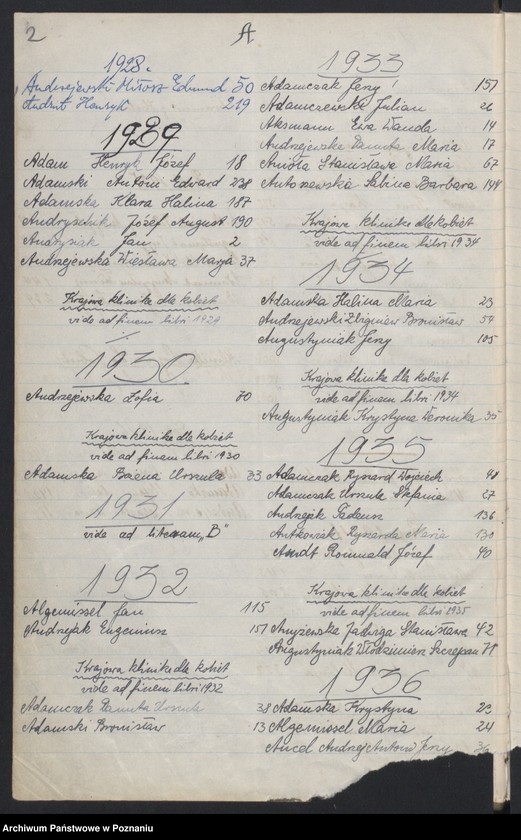 2
A
1928.
Andrzejewski Miłosz Edmund 50
Andrut Henryk 219
1929
Adam Henryk Józef 18
Adamski Antoni Edward 238
Adamska Klara Halina 187
Andryschik Józef August 190
Andrysiak Jan 2
Andrzejewska Wiesława Maryja 37
Krajowa klinika dla kobiet
vide ad finem libri 1929
1930
Andrzejewska Zofia 70
Krajowa klinika dla kobiet
vide ad finem libri 1930
Adamska Bożena Urszula 33
1931
vide ad literam „B"
1932
Algemissel Jan 115
Andrzejak Eugeniusz 157
Krajowa klinika dla kobiet
vide ad finem libri 1932
Adamczak Danuta Urszula 38
Adamski Bronisław 13
1933
Adamczak Jerzy 157
Adamczewski Julian 26
Aksmann Ewa Wanda 14
Andrzejewska Danuta Maria 17
Anioła Stanisława Maria 67
Antoszewska Sabina Barbara 144
Krajowa klinika dla kobiet
vide ad finem libri 1934
1934
Adamska Halina Maria 23
Andrzejewski Zbigniew Bronisław 54
Augustyniak Jerzy 105
Krajowa klinika dla kobiet
vide ad finem libri 1934
Augustyniak Krystyna Weronika 35
1935
Adamczak Ryszard Wojciech
Adamczak Urszula Stefania 27
Andrzejak Tadeusz 136
Antkowiak Ryszarda Maria
Arndt Romuald Józef 40
Krajowa klinika dla kobiet
vide ad finem libri 1935
Jadwiga Stanisława 42
Augustyniak Włodzimierz Szczepan
1936
Adamska Krystyna 23
Algemissel Maria 24
Ancel Andrzej Antoni Jerzy
Archiwum Państwowe w Poznaniu